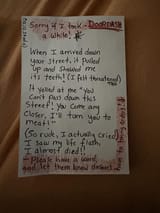 Sorry if I took - DOORDASH
a while!
When I arrived down
your street, it pulled
up and showed me
its teeth! (I felt threatened)
It yelled at me "You
can't pass down this
Street! You come any
Closer, I'll turn you to
meat!"
(So rude, I actually cried)
I saw my life flash,
I almost died!!
- Please have a word,
and let them know